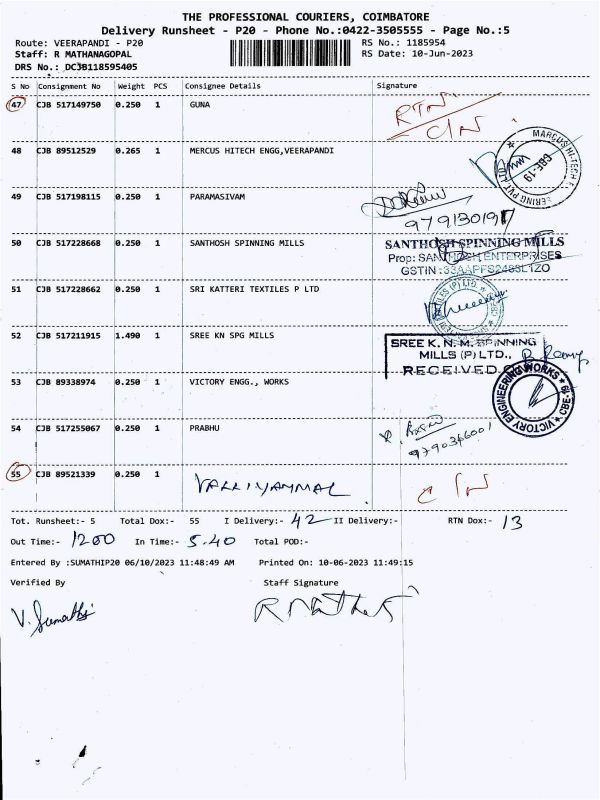 THE PROFESSIONAL COURIERS, COIMBATORE
Delivery Runsheet - P20 - Phone No.:0422-3505555 - Page No.:5
Route: VEERAPANDI - P20 RS No.: 1185954
Staff: R MATHANAGOPAL RS Date: 10-Jun-2023
DRS No.: DCJB118595405
S No Consignment No Weight PCS Consignee Details Signature
47 CJB 517149750 0.250 1 GUNA RTN
C/N
48 CJB 89512529 0.265 1 MERCUS HITECH ENGG,VEERAPANDI MARCUS HI-TECH CBE-19
49 CJB 517198115 0.250 1 PARAMASIVAM
50 CJB 517228668 0.250 1 SANTHOSH SPINNING MILLS SANTHOSH SPINNING MILLS
Prop: SANTHOSH ENTERPRISES
51 CJB 517228662 0.250 1 SRI KATTERI TEXTILES P LTD
52 CJB 517211915 1.490 1 SREE KN SPG MILLS SREE K. N. M. SPINNING
MILLS (P) LTD.,
RECEIVED
53 CJB 89338974 0.250 1 VICTORY ENGG., WORKS VICTORY ENGINEERING WORKS CBE-19
54 CJB 517255067 0.250 1 PRABHU
55 CJB 89521339 0.250 1 VALLIYAMMAL C/N
Tot. Runsheet:- 5 Total Dox:- 55 I Delivery:- 42 II Delivery:- RTN Dox:- 13
Out Time:- 1200 In Time:- 5.40 Total POD:-
Entered By :SUMATHIP20 06/10/2023 11:48:49 AM Printed On: 10-06-2023 11:49:15
Verified By Staff Signature
V. Sumathi